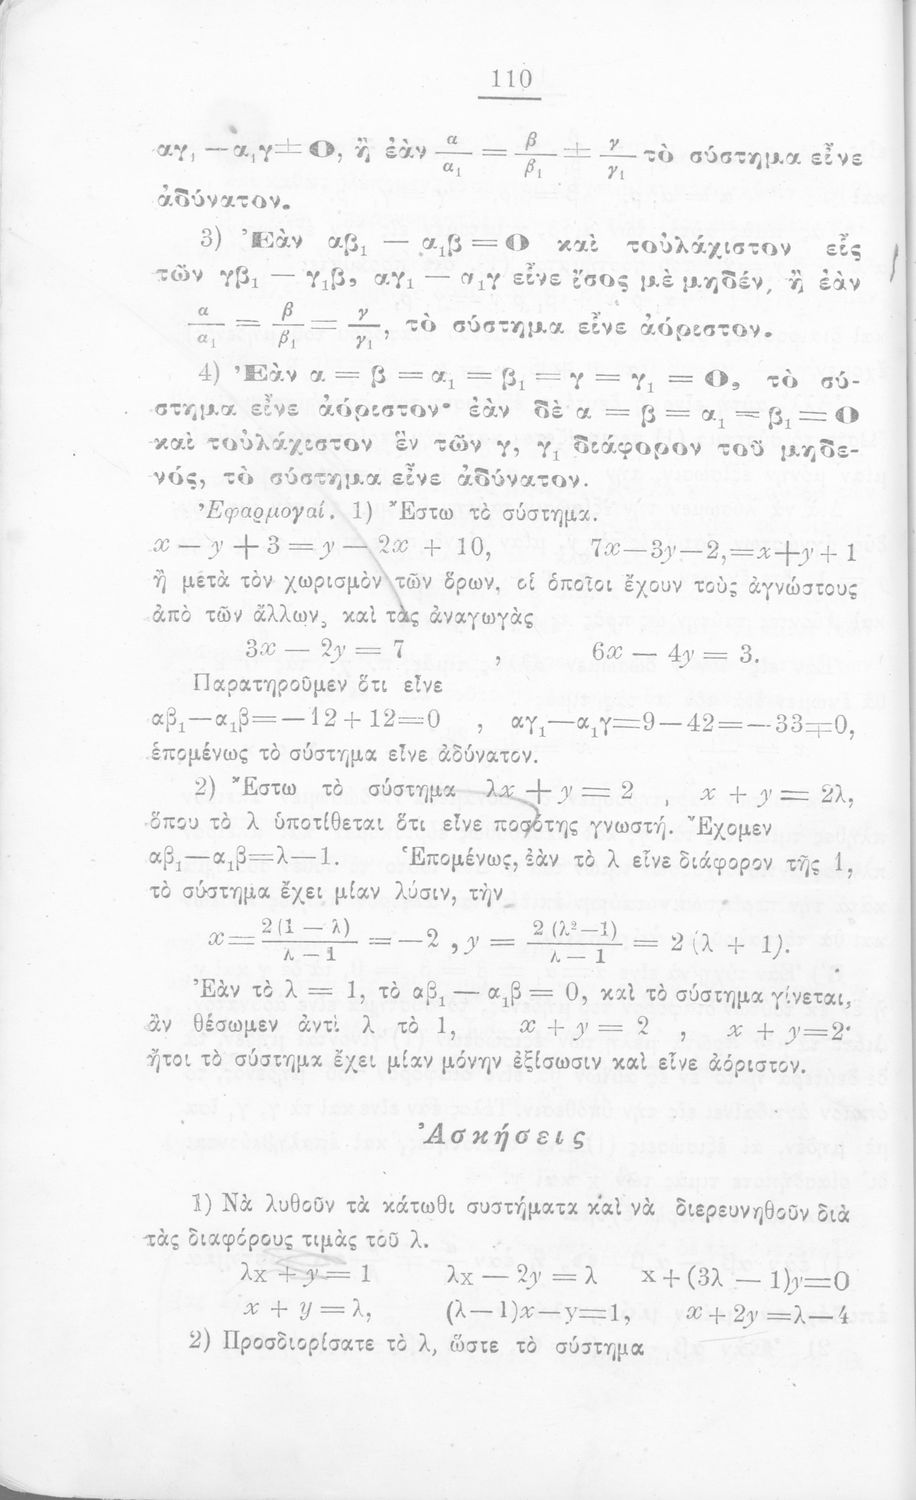 110
αγ₁ — α₁γ ≠ 0, ἢ ἐὰν α/α₁ = β/β₁ ≠ γ/γ₁ τὸ σύστημα εἶνε
ἀδύνατον.
3) Ἐὰν αβ₁ — α₁β = 0 καὶ τοὐλάχιστον εἷς
τῶν γβ₁ — γ₁β, αγ₁ — α₁γ εἶνε ἴσος μὲ μηδέν, ἢ ἐὰν
α/α₁ = β/β₁ = γ/γ₁, τὸ σύστημα εἶνε ἀόριστον.
4) Ἐὰν α = β = α₁ = β₁ = γ = γ₁ = 0, τὸ σύ-
στημα εἶνε ἀόριστον· ἐὰν δὲ α = β = α₁ = β₁ = 0
καὶ τοὐλάχιστον ἓν τῶν γ, γ₁ διάφορον τοῦ μηδε-
νός, τὸ σύστημα εἶνε ἀδύνατον.
Ἐφαρμογαί. 1) Ἔστω τὸ σύστημα.
x — y + 3 = y — 2x + 10, 7x—3y—2,=x+y+1
ἢ μετὰ τὸν χωρισμὸν τῶν ὅρων, οἱ ὁποῖοι ἔχουν τοὺς ἀγνώστους
ἀπὸ τῶν ἄλλων, καὶ τὰς ἀναγωγὰς
3x — 2y = 7 , 6x — 4y = 3.
Παρατηροῦμεν ὅτι εἶνε
αβ₁—α₁β=—12+12=0 , αγ₁—α₁γ=9—42=—33≠0,
ἑπομένως τὸ σύστημα εἶνε ἀδύνατον.
2) Ἔστω τὸ σύστημα λx + y = 2 , x + y = 2λ,
ὅπου τὸ λ ὑποτίθεται ὅτι εἶνε ποσότης γνωστή. Ἔχομεν
αβ₁—α₁β=λ—1. Ἑπομένως, ἐὰν τὸ λ εἶνε διάφορον τῆς 1,
τὸ σύστημα ἔχει μίαν λύσιν, τὴν
x = 2(1 — λ)/λ — 1 = —2 , y = 2(λ²—1)/λ — 1 = 2 (λ + 1).
Ἐὰν τὸ λ = 1, τὸ αβ₁ — α₁β = 0, καὶ τὸ σύστημα γίνεται,
ἂν θέσωμεν ἀντὶ λ τὸ 1, x + y = 2 , x + y=2·
ἤτοι τὸ σύστημα ἔχει μίαν μόνην ἐξίσωσιν καὶ εἶνε ἀόριστον.
Ἀσκήσεις
1) Νὰ λυθοῦν τὰ κάτωθι συστήματα καὶ νὰ διερευνηθοῦν διὰ
τὰς διαφόρους τιμὰς τοῦ λ.
λx + y = 1 λx — 2y = λ x+(3λ — 1)y=0
x + y = λ, (λ—1)x—y=1, x+2y=λ—4
2) Προσδιορίσατε τὸ λ, ὥστε τὸ σύστημα